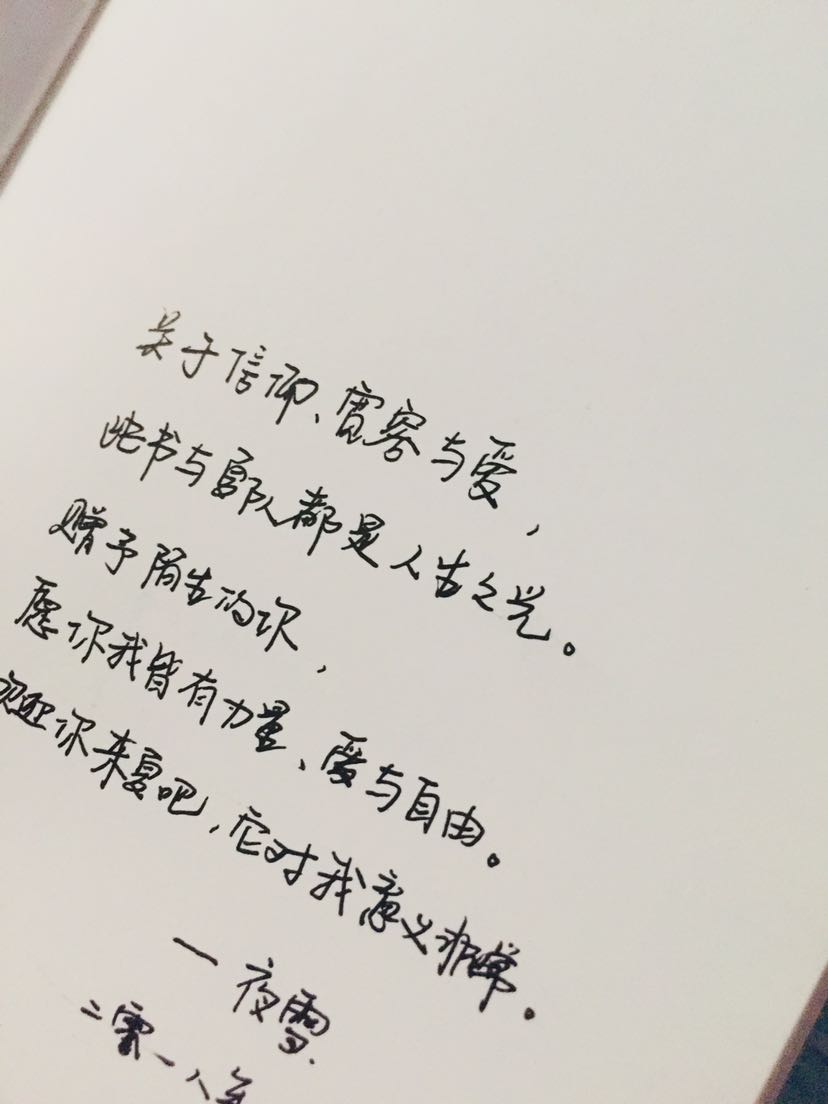 关于信仰、宽容与爱，
此书与宫部都是人生之光。
赠予陌生的你，
愿你我皆有力量、爱与自由。
欢迎你来夏吧，它对我意义非常。
一夜雪.
二零一八年